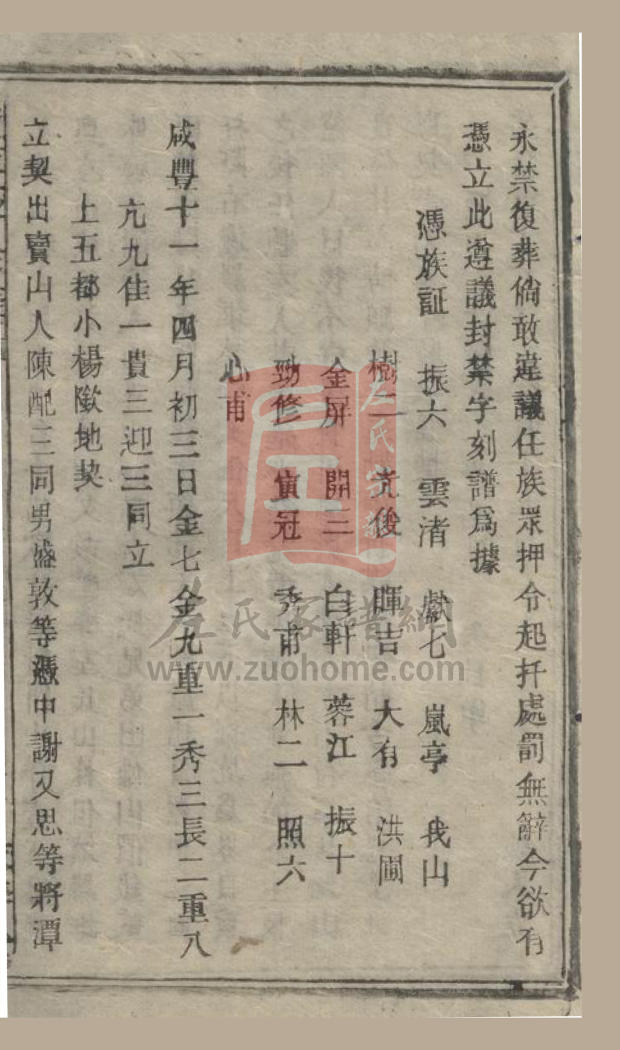 永禁復葬倘敢違議任族眾押令起扦處罰無辭今欲有
憑立此遵議封禁字刻譜爲據
憑族証 振六 雲渚 獻七 嵐亭 我山
樹二 光後 暉吉 大有 洪圃
金屏 開三 白軒 蓉江 振十
勁修 寅冠 秀甫 林二 照六
心甫
咸豐十一年四月初三日金七金九重一秀三長二重八
亢九佳一貴三迎三同立
上五都小楊歘地契
立契出賣山人陳配三同男盛敦等憑中謝又思等將潭
左氏家譜網
www.zuohome.com
左氏家譜